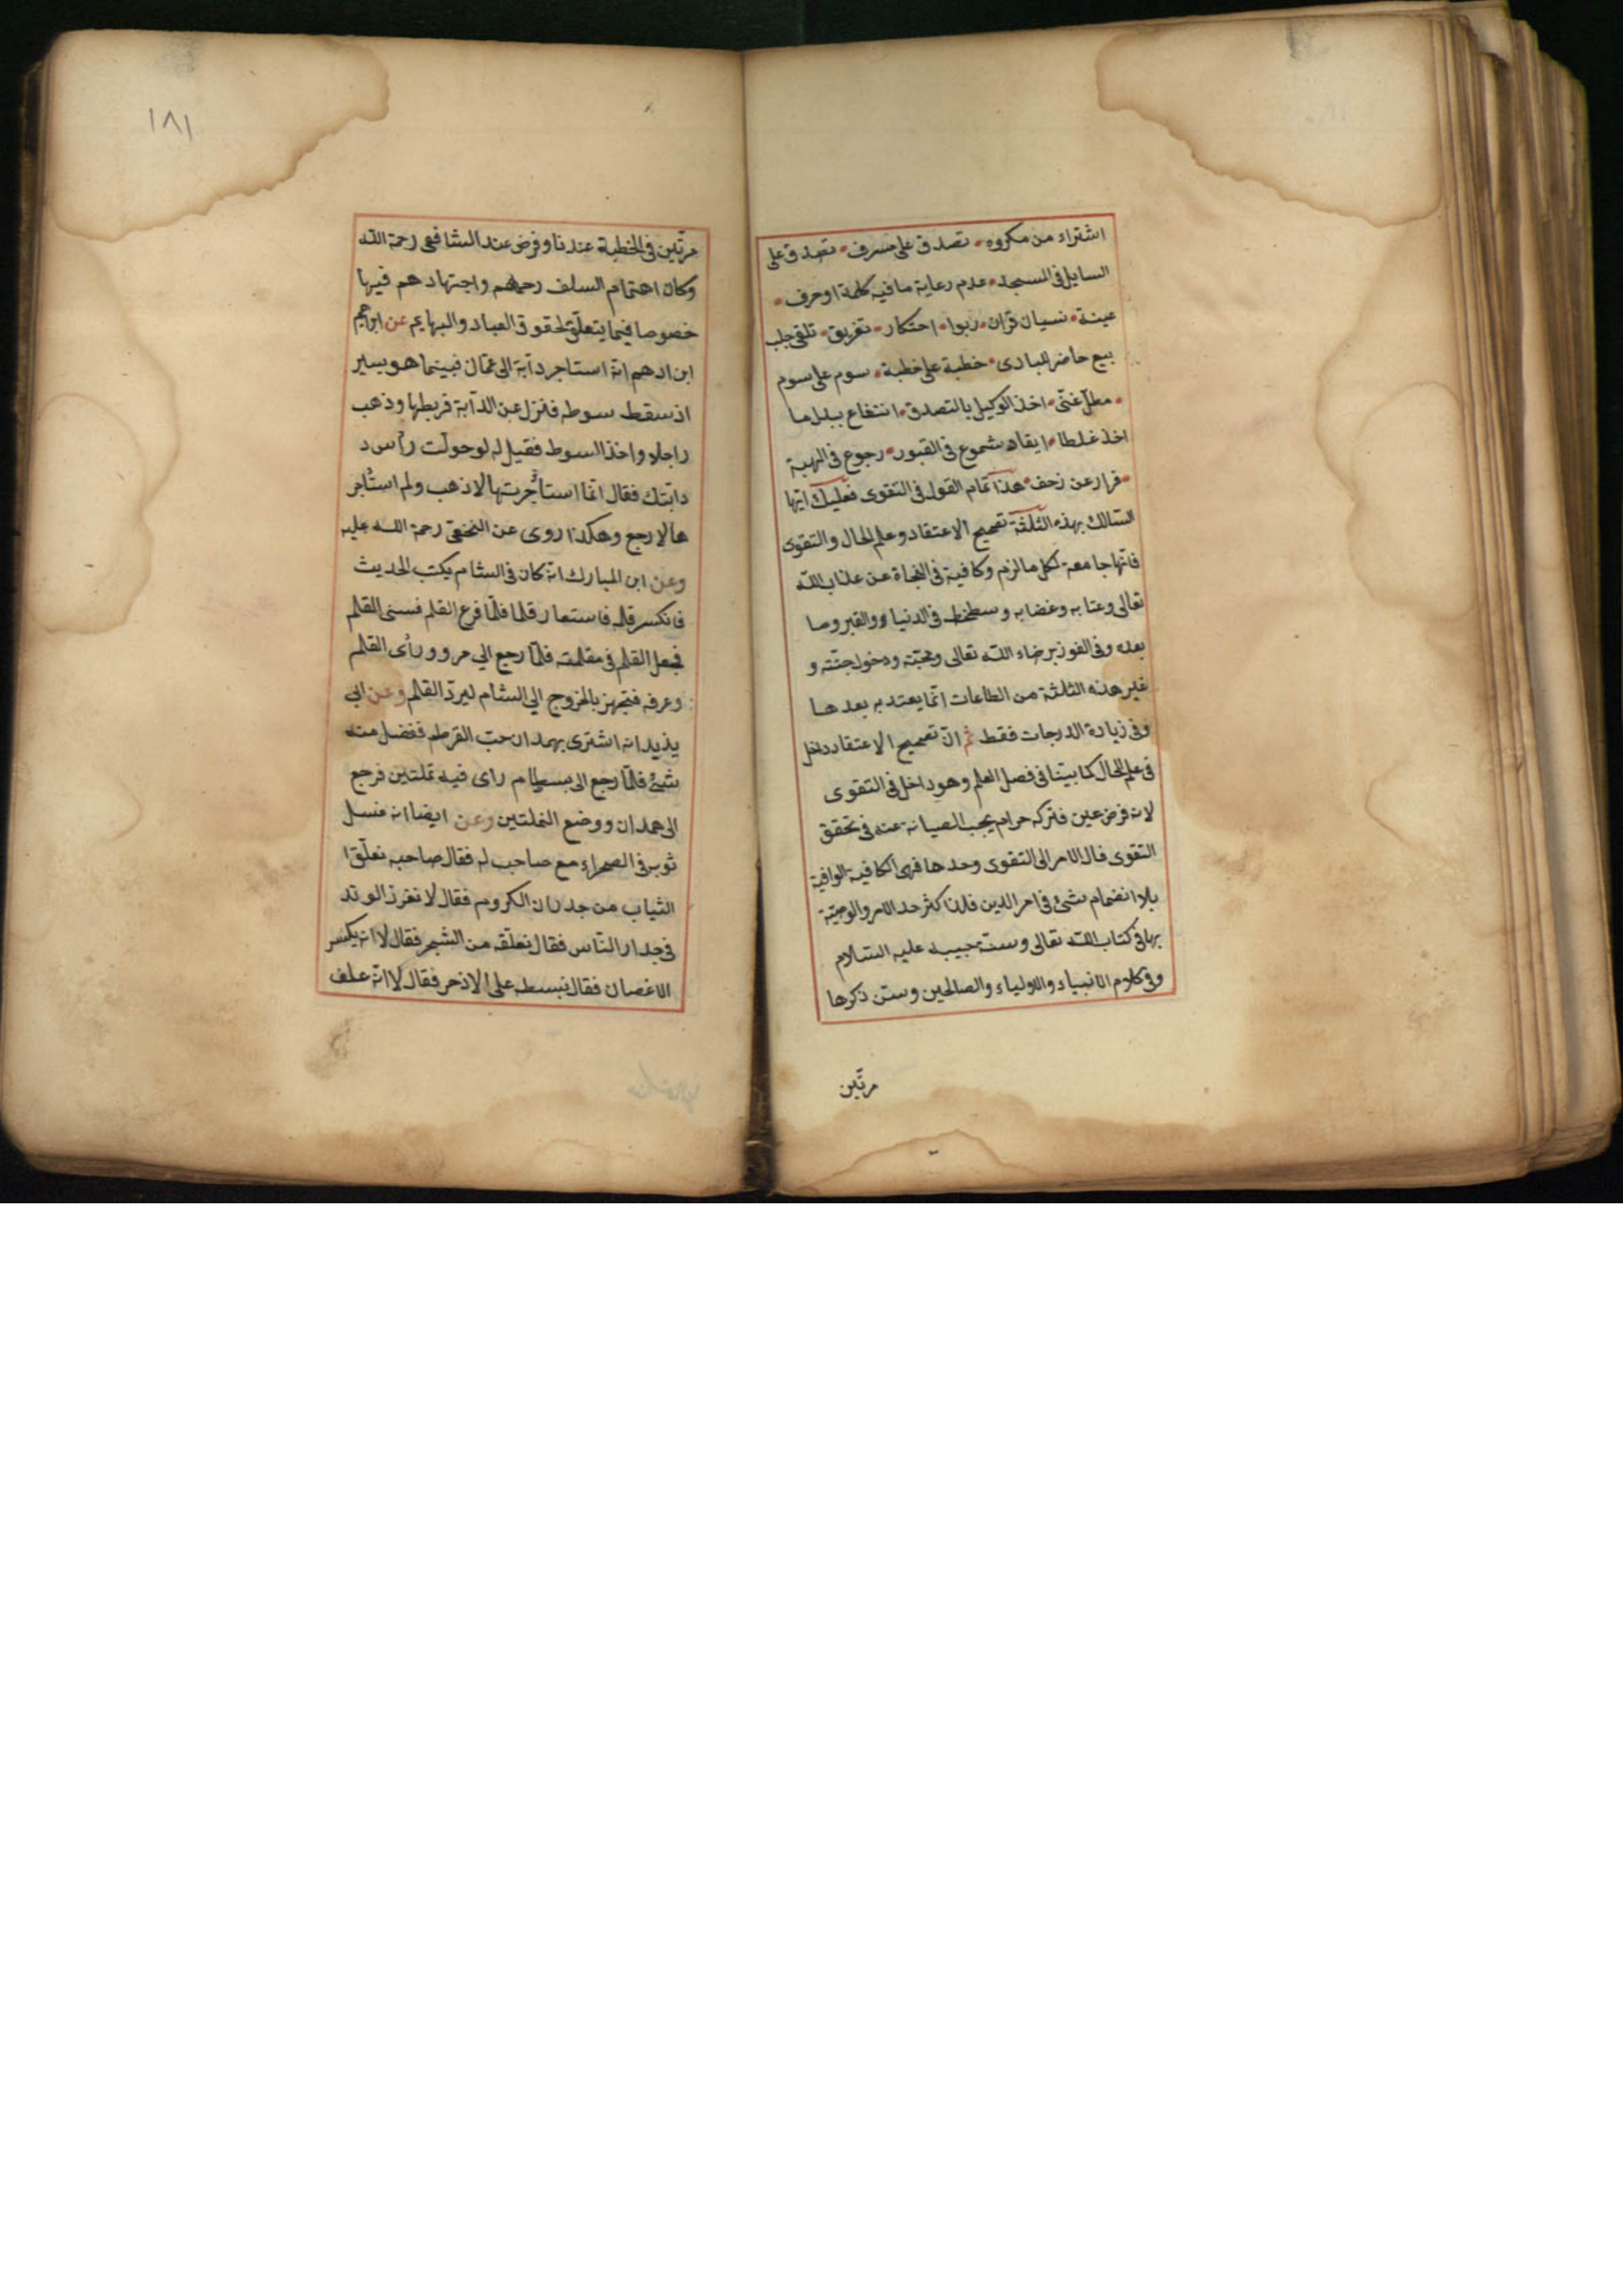 اشتراء من مكروه • تصدق على مسرف • تصدق على
السايل فى المسجد • عدم رعاية ما فيه كلمة او حرف •
عينة • نسيان قرآن • ربوا • احتكار • تفريق • تلقى جلب
بيع حاضر للبادى • خطبة على خطبة • سوم على سوم
• مطل غنى • اخذ الوكيل بالتصدق • انتفاع ببدل ما
اخذ غلطا • ايقاد شموع فى القبور • رجوع فى الهبة
• فرار عن زحف • هذا تمام القول فى التقوى فعليك ايّها
السّالك بهذه الثلثة تصحيح الاعتقاد وعلم الحال والتقوى
فانّها جامعة لكل ما لزم وكافية فى النجاة عن عذاب الله
تعالى وعتابه وغضابه وسطخطه فى الدنيا ووالقبر وما
بعده وفى الفوز برضاء الله تعالى ومحبّته ودخول جنّته و
غير هذه الثلثة من الطاعات انّما يعتد به بعدها
وفى زيادة الدرجات فقط ثم انّ تصحيح الاعتقاد داخل
فى علم الحال كما بيّنا فى فصل العلم وهو داخل فى التقوى
لانه فرض عين فتركه حرام يجب الصيانة عنه فى تحقق
التقوى فال الامر الى التقوى وحدها فهى الكافية الوافية
بلا انضمام شئ فى امر الدين فلذا كثر حد الامر والوصيّة
بها فى كتاب الله تعالى وسنة حبيبه عليه السّلام
وفى كلام الانبياء والاولياء والصالحين وسنّ ذكرها
مرتّين
١٨١
مرتّين فى الخطبة عندنا وفرض عند الشافعى رحمة الله
وكان اهتمام السلف رحمهم واجتهادهم فيها
خصوصا فيما يتعلّق لحقوق العباد والبهايم عن ابراهيم
ابن ادهم انّه استاجر دابّة الى عمّان فبينما هو يسير
اذ سقط سوطه فنزل عن الدآبة فربطها وذهب
راجلا واخذ السوط فقيل له لو حولت رأس د
دابّتك فقال انّما استأجرتها لاذهب ولم استأجر
ها لارجع وهكذا روى عن النخعى رحمة الله عليه
وعن ابن المبارك انّه كان فى الشام يكتب الحديث
فانكسر قلمه فاستعار قلما فلمّا فرغ القلم فسنى القلم
فجعل القلم فى مقلمته فلمّا رجع الي مرو ورأى القلم
وعرفه فتجهز بالخروج الي الشام ليردّ القلم وعن ابى
يذيد انه اشترى بهمدان حبّ القرطم ففضل منه
شئ فلمّا رجع الى بسطام راى فيه نملتين فرجع
الى همدان ووضع النملتين وعن ايضا انه غسل
ثوبه فى الصحراء مع صاحب له فقال صاحبه نعلّق ا
الثياب من جدران الكروم فقال لا نغرز الوتد
فى جدار النّاس فقال نعلّقه من الشجر فقال لا انه يكسر
الاغصان فقال نبسطه على الاذخر فقال لا انّه علف